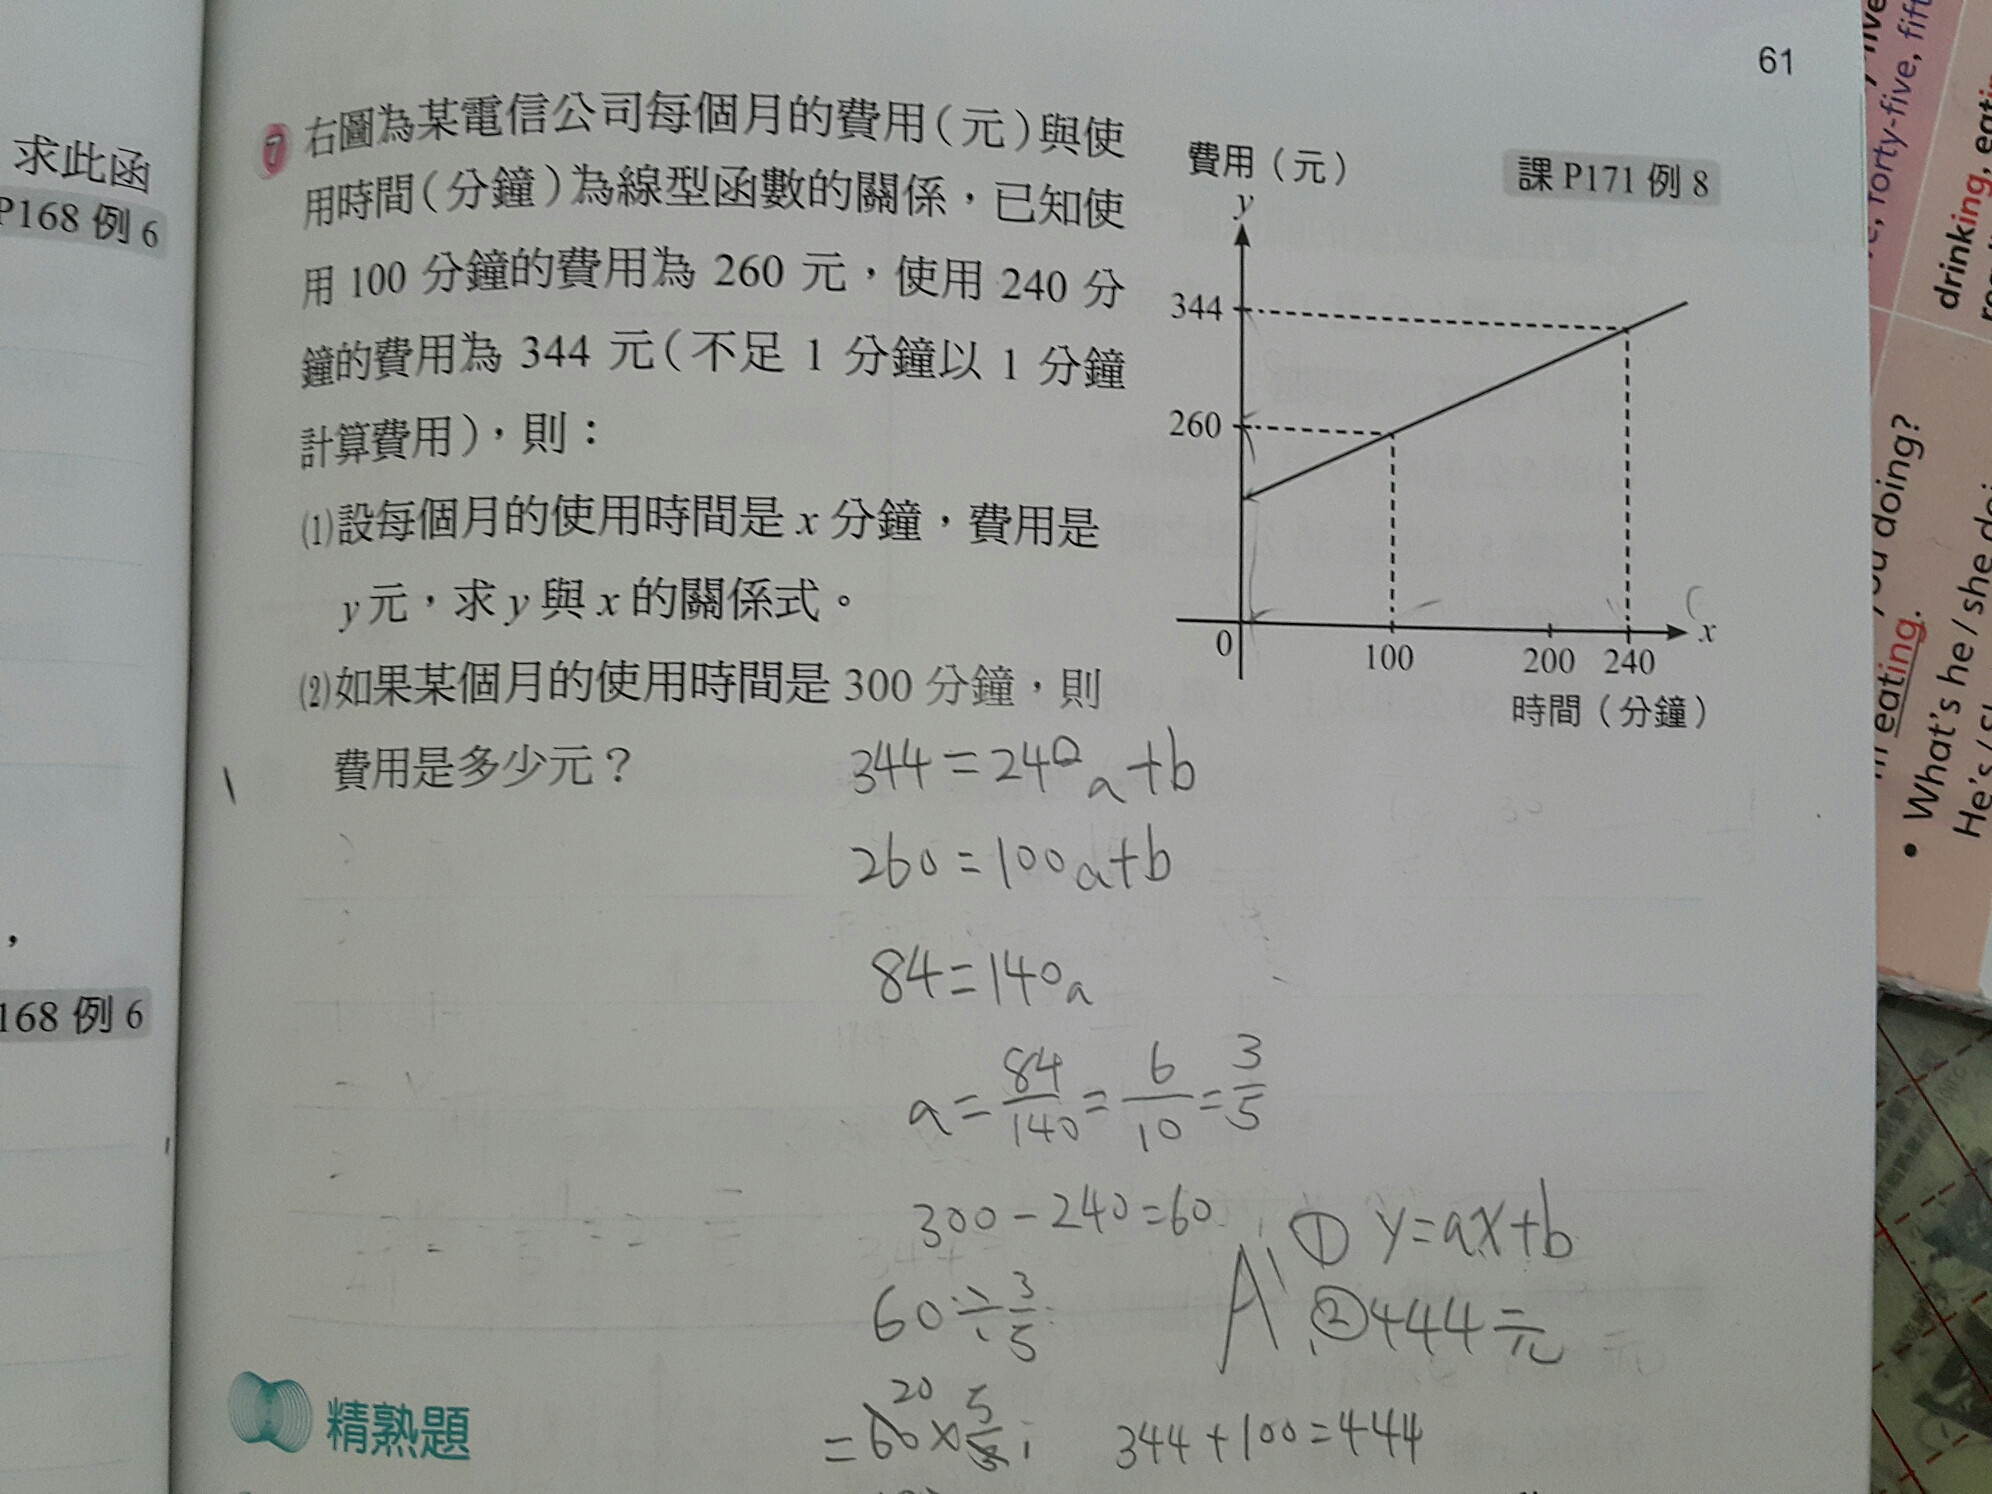 61
求此函
P168 例 6
168 例 6
7 右圖為某電信公司每個月的費用(元)與使
用時間(分鐘)為線型函數的關係，已知使
用 100 分鐘的費用為 260 元，使用 240 分
鐘的費用為 344 元(不足 1 分鐘以 1 分鐘
計算費用)，則：
⑴設每個月的使用時間是 x 分鐘，費用是
y 元，求 y 與 x 的關係式。
⑵如果某個月的使用時間是 300 分鐘，則
費用是多少元？
費用（元）
課 P171 例 8
y
344
260
0
100
200
240
x
時間（分鐘）
344=240a+b
260=100a+b
84=140a
a=84/140=6/10=3/5
300-240=60
60÷3/5
20
=60×5/3
344+100=444
A:
① y=ax+b
②444元
精熟題
forty-five,
drinking,
doing?
eating.
• What's he / she